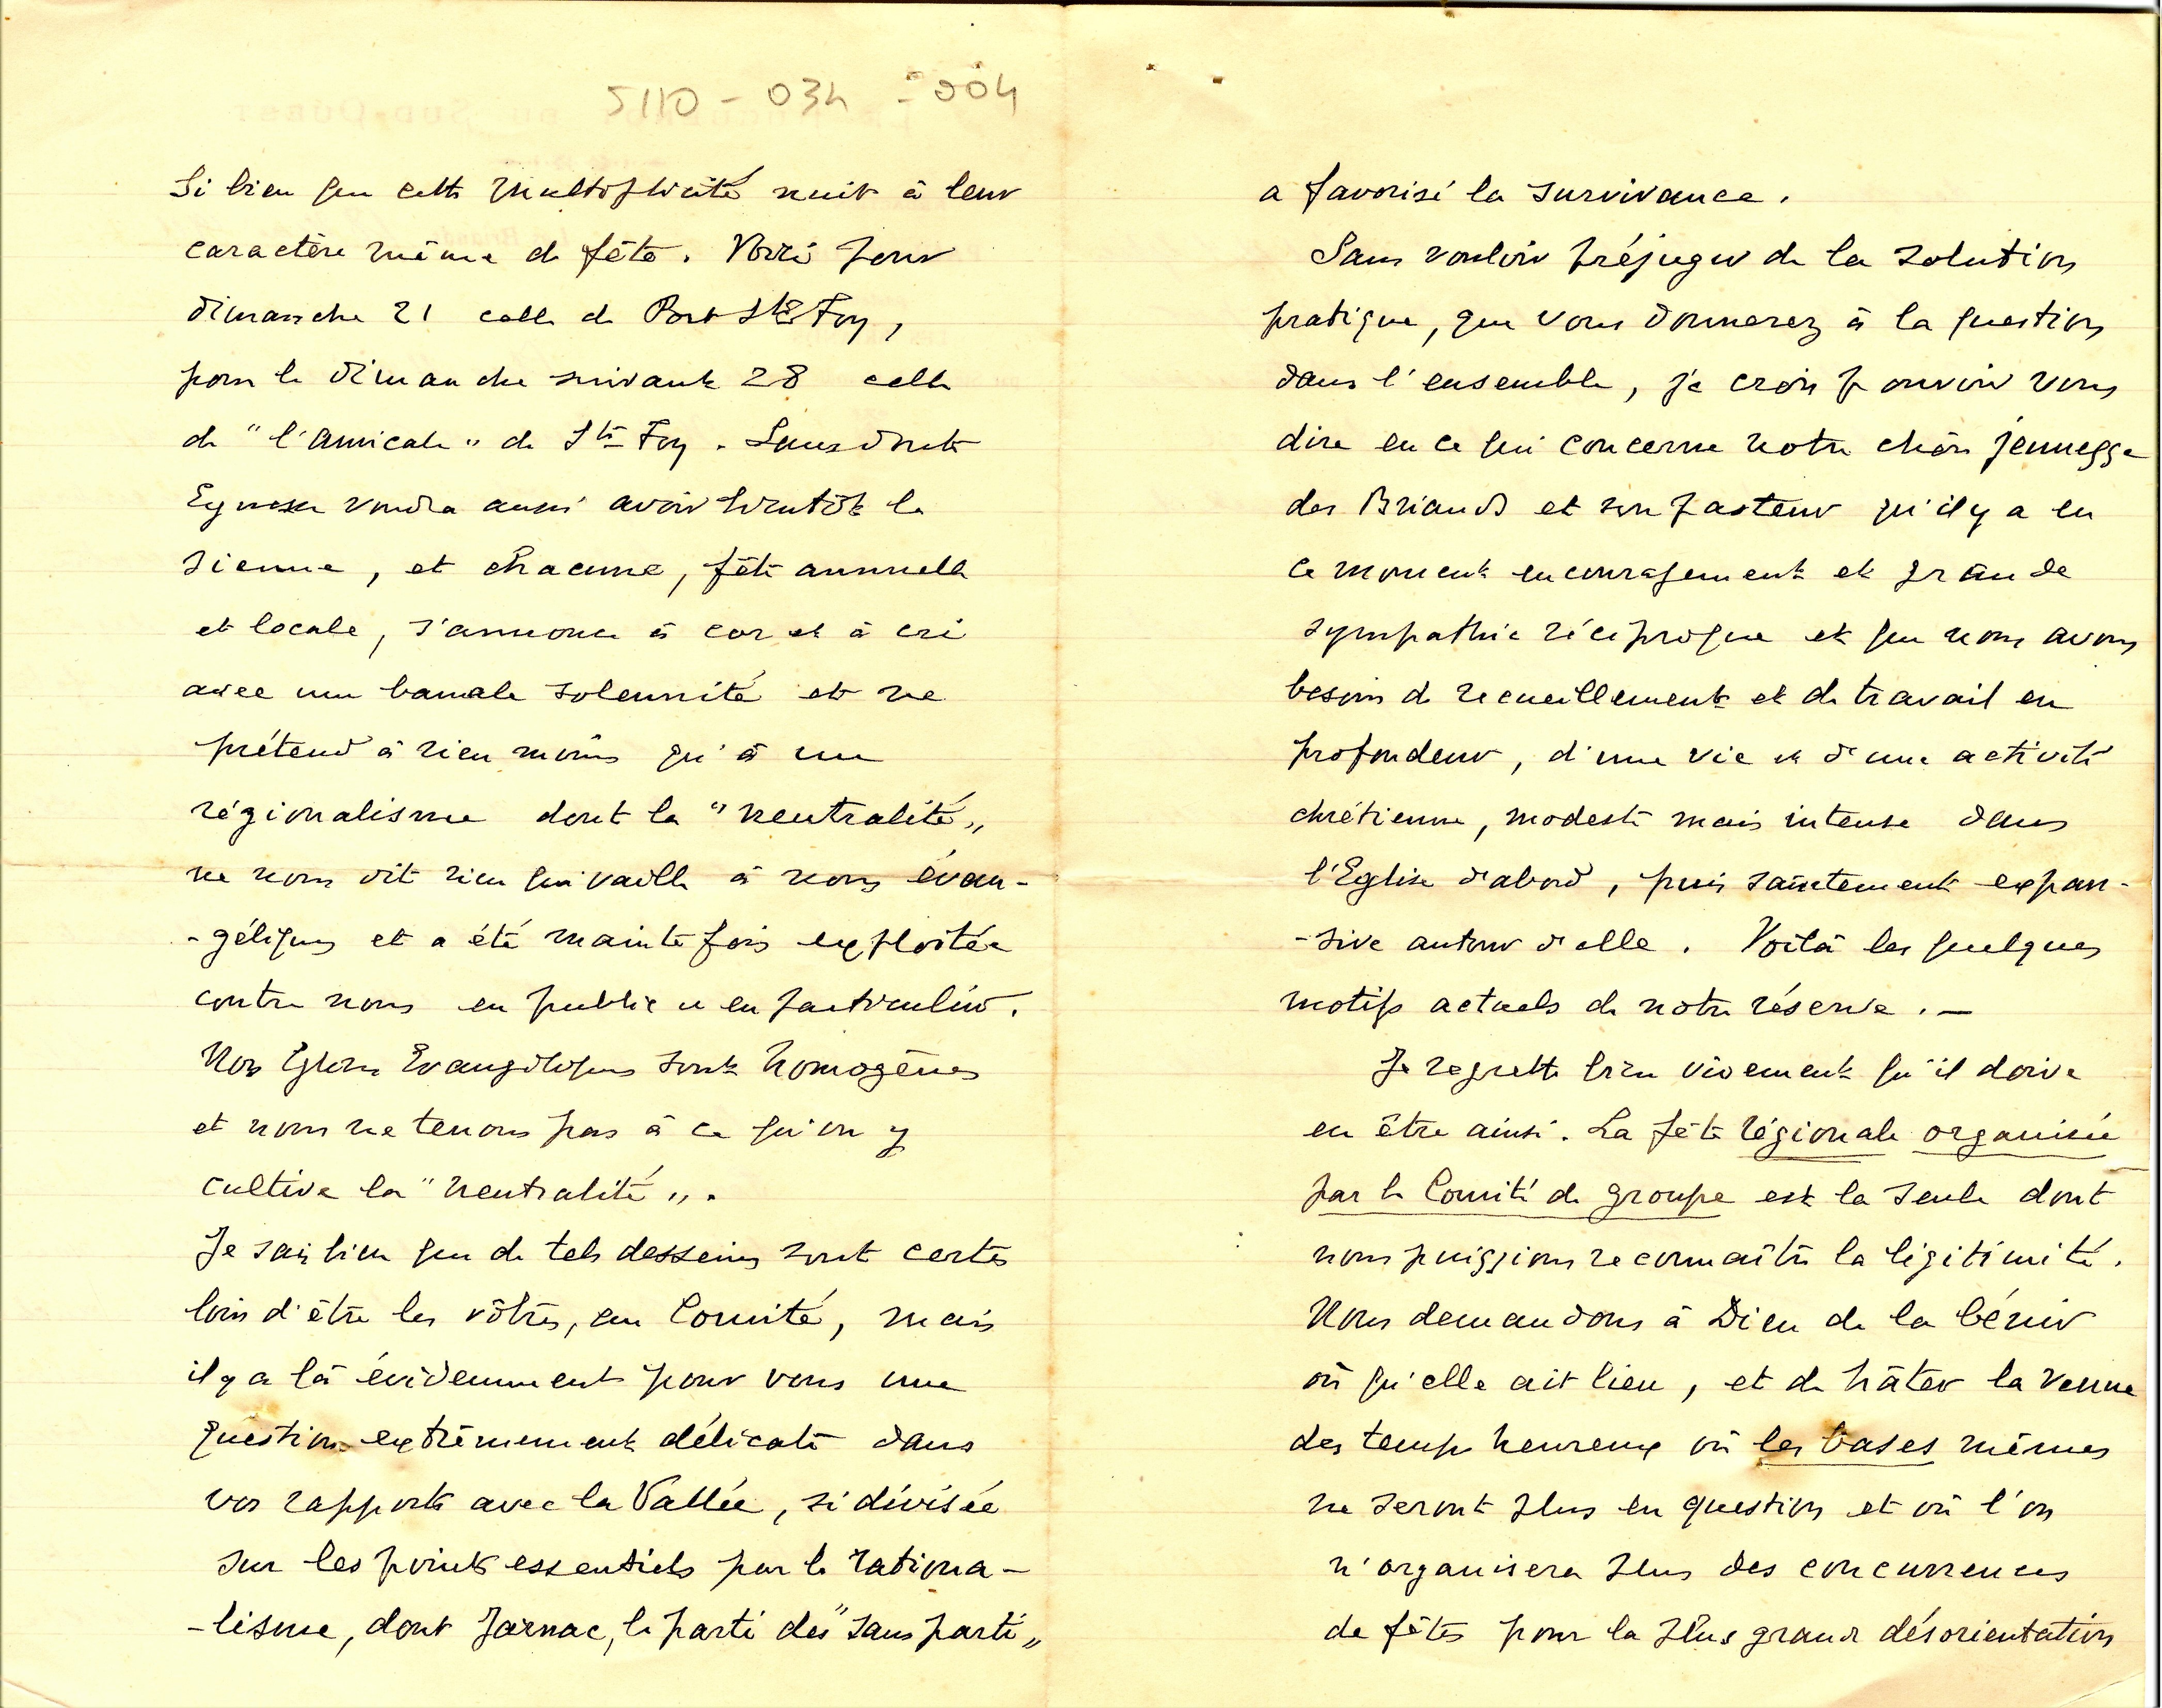 5110 - 034 - 004
Si bien que cette multiplicité nuit à leur
caractère même de fête. Voici pour
dimanche 21 celle de Port Ste Foy,
pour le dimanche suivant 28 celle
de "l'Amicale" de Ste Foy. Sans doute
Eynesse voudra aussi avoir bientôt la
sienne, et chacune, fête annuelle
et locale, s'annonce à cor et à cri
avec une banale solennité et ne
prétend à rien moins qu'à un
régionalisme dont la "neutralité"
ne nous dit rien qui vaille à nous évan-
-géliques et a été mainte fois exploitée
contre nous en public et en particulier.
Nos Eglises Evangéliques sont homogènes
et nous ne tenons pas à ce qu'on y
cultive la "neutralité".
Je sais bien que de tels desseins sont certes
loin d'être les vôtres, au Comité, mais
il y a là évidemment pour vous une
question extrêmement délicate dans
vos rapports avec la Vallée, si divisée
sur les points essentiels par le rationa-
-lisme, dont Jarnac, le parti des "sans parti"
a favorisé la survivance.
Sans vouloir préjuger de la solution
pratique, que vous donnerez à la question
dans l'ensemble, je crois pouvoir vous
dire en ce qui concerne notre chère jeunesse
des Briands et son pasteur qu'il y a en
ce moment encouragement et grande
sympathie réciproque et que nous avons
besoin de recueillement et de travail en
profondeur, d'une vie et d'une activité
chrétienne, modeste mais intense dans
l'Eglise d'abord, puis saintement expan-
-sive autour d'elle. Voilà les quelques
motifs actuels de notre réserve. —
Je regrette bien vivement qu'il doive
en être ainsi. La fête régionale organisée
par le Comité de groupe est la seule dont
nous puissions reconnaître la légitimité.
Nous demandons à Dieu de la bénir
où qu'elle ait lieu, et de hâter la venue
des temps heureux où les bases mêmes
ne seront plus en question et où l'on
n'organisera plus des concurrences
de fêtes pour la plus grande désorientation